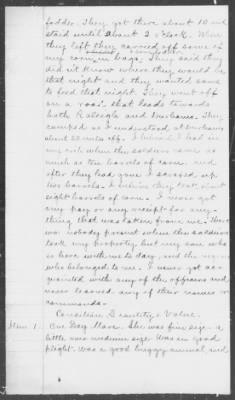 fodder. They got there about 10 and
staid until about 2 o'clock. When
they left they carried off some of
my corn in bags. They said they
did not know where they would be
that night and they wanted some
to feed that night. They went off
on a road that leads towards
both Raleigh and Durhams. They
camped as I understood at Durhams
about 20 miles off. I had in
my crib when the soldiers came as
much as ten barrels of corn and
after they had gone I scraped up
two barrels. I believe they took about
eight barrels of corn. I never got
any pay or any receipt for any-
thing that was taken from me. There
was nobody present when the soldiers
took my property but my son who
is here with me to day, and the negroes
who belonged to me. I never got ac-
quainted with any of the officers and
never learned any of their names or
commands.
Condition Quantity & Value.
Item 1. One Bay Mare. She was fine size a
little over medium size. Was in good
plight. Was a good buggy animal and